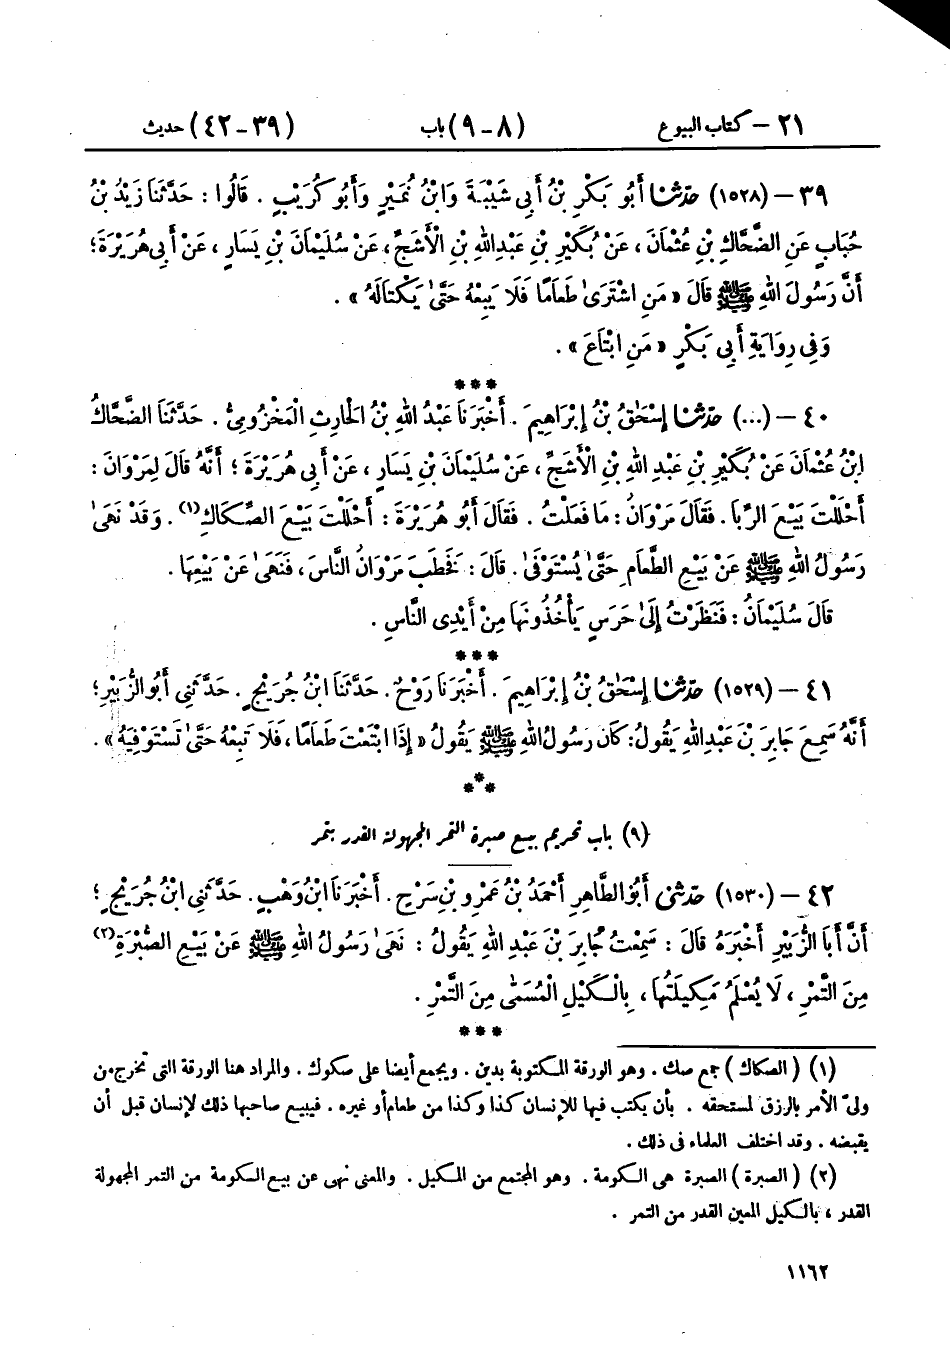 ٢١ – كتاب البيوع (٨ – ٩) باب (٣٩ – ٤٢) حديث
٣٩ – (١٥٢٨) حَدَّثَنَا أَبُو بَكْرِ بْنُ أَبِي شَيْبَةَ وَابْنُ نُمَيْرٍ وَأَبُو كُرَيْبٍ . قَالُوا : حَدَّثَنَا زَيْدُ بْنُ
حُبَابٍ عَنِ الضَّحَّاكِ بْنِ عُثْمَانَ ، عَنْ بُكَيْرِ بْنِ عَبْدِ اللهِ بْنِ الْأَشَجِّ ، عَنْ سُلَيْمَانَ بْنِ يَسَارٍ ، عَنْ أَبِي هُرَيْرَةَ ؛
أَنَّ رَسُولَ اللهِ ﷺ قَالَ « مَنِ اشْتَرَىٰ طَعَامًا فَلَا يَبِعْهُ حَتَّىٰ يَكْتَالَهُ » .
وَفِي رِوَايَةِ أَبِي بَكْرٍ « مَنِ ابْتَاعَ » .
***
٤٠ – (...) حَدَّثَنَا إِسْحَٰقُ بْنُ إِبْرَاهِيمَ . أَخْبَرَنَا عَبْدُ اللهِ بْنُ الْحَارِثِ الْمَخْزُومِيُّ . حَدَّثَنَا الضَّحَّاكُ
ابْنُ عُثْمَانَ عَنْ بُكَيْرِ بْنِ عَبْدِ اللهِ بْنِ الْأَشَجِّ ، عَنْ سُلَيْمَانَ بْنِ يَسَارٍ ، عَنْ أَبِي هُرَيْرَةَ ؛ أَنَّهُ قَالَ لِمَرْوَانَ :
أَحْلَلْتَ بَيْعَ الرِّبَا . فَقَالَ مَرْوَانُ : مَا فَعَلْتُ . فَقَالَ أَبُو هُرَيْرَةَ : أَحْلَلْتَ بَيْعَ الصِّكَاكِ (١) . وَقَدْ نَهَىٰ
رَسُولُ اللهِ ﷺ عَنْ بَيْعِ الطَّعَامِ حَتَّىٰ يُسْتَوْفَىٰ . قَالَ : فَخَطَبَ مَرْوَانُ النَّاسَ ، فَنَهَىٰ عَنْ بَيْعِهَا .
قَالَ سُلَيْمَانُ : فَنَظَرْتُ إِلَىٰ حَرَسٍ يَأْخُذُونَهَا مِنْ أَيْدِي النَّاسِ .
***
٤١ – (١٥٢٩) حَدَّثَنَا إِسْحَٰقُ بْنُ إِبْرَاهِيمَ . أَخْبَرَنَا رَوْحٌ . حَدَّثَنَا ابْنُ جُرَيْجٍ . حَدَّثَنِي أَبُو الزُّبَيْرِ ؛
أَنَّهُ سَمِعَ جَابِرَ بْنَ عَبْدِ اللهِ يَقُولُ : كَانَ رَسُولُ اللهِ ﷺ يَقُولُ « إِذَا ابْتَعْتَ طَعَامًا ، فَلَا تَبِعْهُ حَتَّىٰ تَسْتَوْفِيَهُ » .
***
(٩) باب تحريم بيع صبرة التمر المجهولة القدر بتمر
٤٢ – (١٥٣٠) حَدَّثَنِي أَبُو الطَّاهِرِ أَحْمَدُ بْنُ عَمْرِو بْنِ سَرْحٍ . أَخْبَرَنَا ابْنُ وَهْبٍ . حَدَّثَنِي ابْنُ جُرَيْجٍ ؛
أَنَّ أَبَا الزُّبَيْرِ أَخْبَرَهُ قَالَ : سَمِعْتُ جَابِرَ بْنَ عَبْدِ اللهِ يَقُولُ : نَهَىٰ رَسُولُ اللهِ ﷺ عَنْ بَيْعِ الصُّبْرَةِ (٢)
مِنَ التَّمْرِ ، لَا يُعْلَمُ مَكِيلَتُهَا ، بِالْكَيْلِ الْمُسَمَّىٰ مِنَ التَّمْرِ .
***
(١) ( الصكاك ) جمع صك . وهو الورقة المكتوبة بدين . ويجمع أيضا على صكوك . والمراد هنا الورقة التى تخرج من
ولىّ الأمر بالرزق لمستحقه . بأن يكتب فيها للإنسان كذا وكذا من طعام أو غيره . فيبيع صاحبها ذلك لإنسان قبل أن
يقبضه . وقد اختلف العلماء فى ذلك .
(٢) ( الصبرة ) الصبرة هى الكومة . وهو المجتمع من المكيل . والمعنى نهى عن بيع الكومة من التمر المجهولة
القدر ، بالكيل المعين القدر من التمر .
١١٦٢